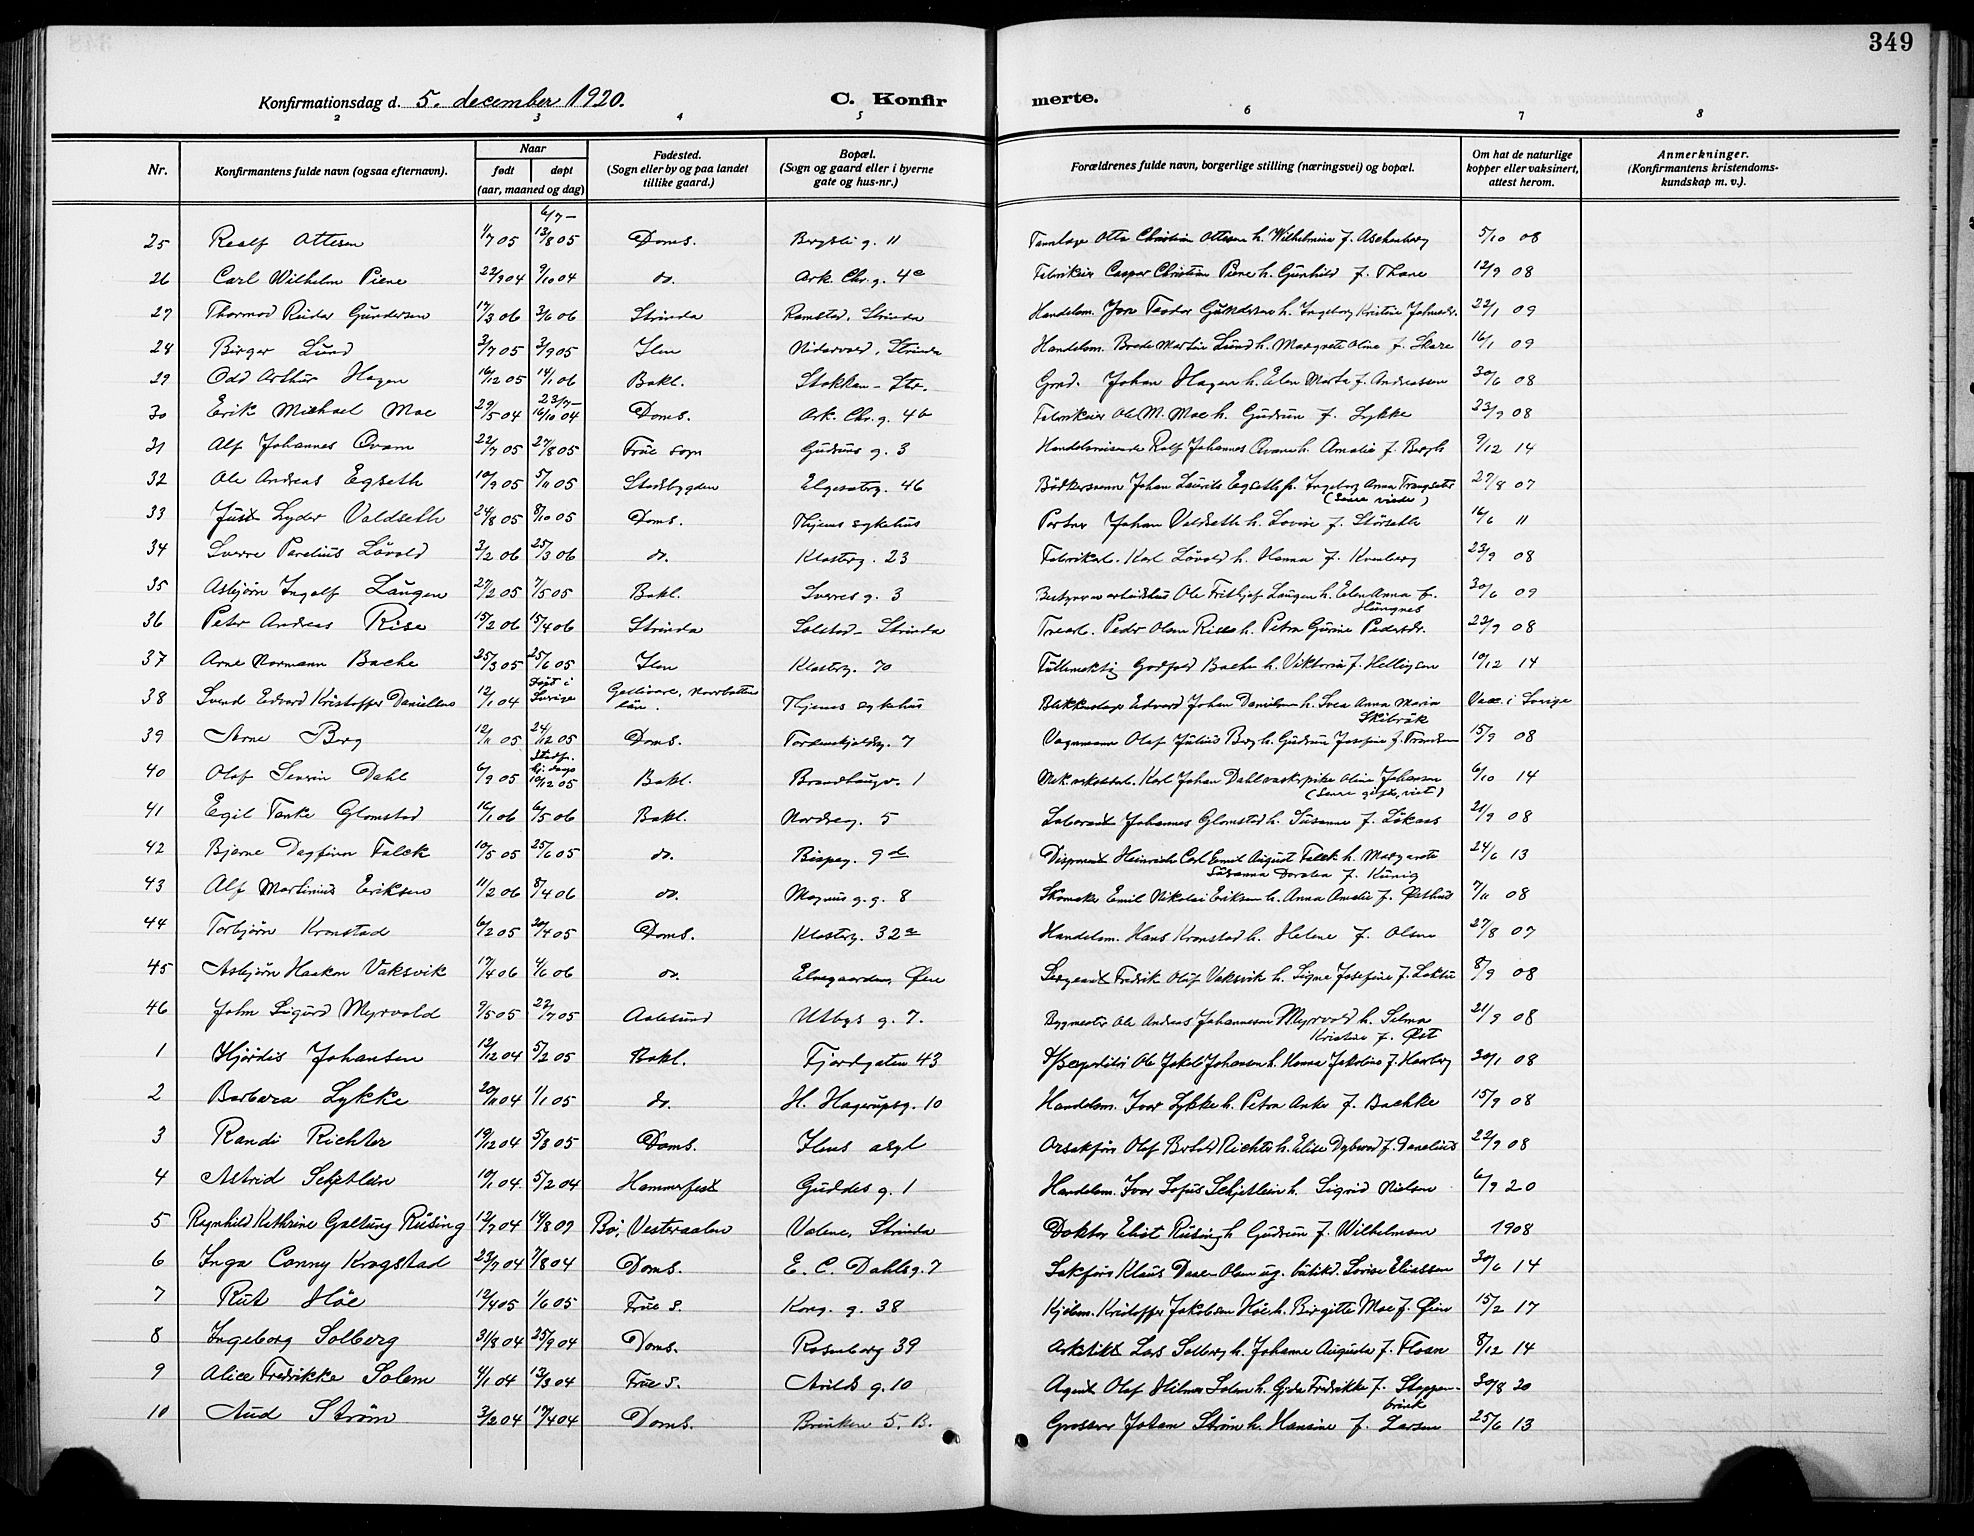 349
Konfirmationsdag d. 5. december 1920. C. Konfir merte.
2 3 4 5 6 7 8
Nr. Konfirmantens fulde navn (ogsaa efternavn). Naar født døpt (aar, maaned og dag) Fødested. (Sogn eller by og paa landet tillike gaard.) Bopæl. (Sogn og gaard eller i byerne gate og hus-nr.) Forældrenes fulde navn, borgerlige stilling (næringsvei) og bopæl. Om hat de naturlige kopper eller vaksinert, attest herom. Anmerkninger. (Konfirmantens kristendoms-kundskap m. v.).
6/7 –
25 Realf Ottesen 1/7 05 13/8 05 Doms. Bergsli g. 11 Otto Christian Ottesen h. Wilhelmine f. Aschenberg 5/10 08
26 Carl Wilhelm Piene 22/9 04 9/10 04 do. Ark. Chr. g. 4c Fabrikeier Casper Christian Piene h. Gunhild f. Thane 12/9 08
27 Thormod Reidar Gundersen 17/3 06 3/6 06 Strinda Ramstad, Strinda Handelsm. Jon Teodor Gundersen h. Ingeborg Kristine Johnsdr. 22/1 09
28 Birger Lund 3/7 05 3/9 05 Ilen Nidarvold, Strinda Handelsm. Brede Martin Lund h. Margrete Oline f. Skare 16/1 09
29 Odd Arthur Hagen 16/12 05 14/1 06 Bakl. Stokkan – Str. Johan Hagen h. Elen Marta f. Andreassen 30/6 08
23/7 –
30 Erik Michael Moe 29/5 04 16/10 04 Doms. Ark. Chr. g. 4b Fabrikeier Ole M. Moe h. Gudrun f. Lykke 23/9 08
31 Alf Johannes Qvam 22/7 05 27/8 05 Frue sogn Gudruns g. 3 Handelsreisende Rolf Johannes Qvam h. Amalie f. Bergh 9/12 14
32 Ole Andreas Egseth 10/9 05 5/11 05 Stadsbygden Elgesetrg. 46 Bödkersvenn Johan Laurits Egseth h. Ingeborg Anna 27/8 07
(senere viede)
33 Just Lyder Valdseth 24/8 05 8/10 05 Doms. Thjems sykehus Portner Johan Valdseth h. Lovise f. Störseth 16/6 11
34 Sverre Parelius Lövold 3/2 06 25/3 06 do. Klosterg. 23 Fabrikarb. Karl Lövold h. Hanna f. Kvenberg 23/9 08
35 Asbjørn Ingolf Laugen 27/2 05 7/5 05 Bakl. Sverres g. 3 Ole Fritjof Laugen h. Elen Anna f. 30/6 09
Hungnes
36 Peter Andreas Rise 15/2 06 15/4 06 Strinda Solstad – Strinda Peder Olsen Rise h. Petra Gurine Pedersdr. 22/9 08
37 Arne Normann Bache 25/3 05 25/6 05 Ilen Klosterg. 70 Fuldmektig Godfred Bache h. Viktoria f. Helligsen 10/12 14
38 Svend Edvard Kristoffer Danielsen 12/1 04 Døpt i Sverige Gellivare, Norrbotten län. Thjems sykehus Blikkenslager Edvard Johan Danielsen h. Svea Anna Maria Vacc. i Sverige
39 Arne Berg 12/11 05 24/12 05 Doms. Tordenskjoldsg. 7 Vognmann Olaf Julius Berg h. Gudrun Josefine f. 15/9 08
40 Olaf Dahl 6/9 05 10/12 05 Bakl. Brandhaugv. 1 Karl Johan Dahl Oline Johansen 6/10 14
41 Egil Tanke Glomstad 16/1 06 6/5 06 Bakl. Nordreg. 5 Laborant Johannes Glomstad h. Susanne f. Lökaas 21/9 08
42 Bjarne Dagfinn Falck 10/5 05 25/6 05 do. Bispeg. 9d Disponent Heinrich Carl Emil August Falck h. Margarete 24/6 13
Susanna Dorotea f. König
43 Alf Martinius Eriksen 11/2 06 8/4 06 do. Magnus g. 8 Skomaker Emil Nikolai Eriksen h. Anna Amalie f. Østhus 7/11 08
44 Torbjørn Kronstad 6/2 05 20/4 05 Doms. Klosterg. 32a Handelsm. Hans Kronstad h. Helene f. Olsen 27/8 07
45 Asbjørn Haakon Vaksvik 17/4 06 4/6 06 do. Elvegaarden, Øen Sergeant Fredrik Oluf Vaksvik h. Signe Josefine f. 8/9 08
46 John Sigurd Myrvold 9/5 05 22/7 05 Aalesund Utbys g. 7. Bygmester Ole Andreas Johannesen Myrvold h. Selma 21/9 08
Kristine f. Øst
1 Hjørdis Johansen 12/12 04 5/2 05 Bakl. Fjordgaten 43 Ole Jakob Johansen h. Hanna Jakobine f. 30/1 08
2 Barbara Lykke 20/11 04 1/1 05 do. H. Hagerupsg. 10 Handelsm. Ivar Lykke h. Petra Anker f. Bachke 15/9 08
3 Randi Richter 19/12 04 5/3 05 Doms. Ilens asyl Olaf Richter h. Elise Dybwad f. 22/9 08
4 Astrid Schjetlein 10/1 04 5/2 04 Hammerfest Guddes g. 1 Handelsm. Ivar Sofus Schjetlein h. Sigrid Nielsen 6/9 20
5 Ragnhild Kathrine Galtung Rüsing 12/7 04 14/8 09 Bø, Vesteraalen Valene, Strinda Doktor Eliot Rüsing h. Gudrun f. Wilhelmsen 1908
6 Inga Conny Krogstad 23/7 04 7/8 04 Doms. E. C. Dahlsg. 7 Sakfører Klaus Daae-Olsen ug. butikd. Lovise Eliassen 30/6 14
7 Rut Höe 12/4 05 1/6 05 Frue s. Kong. g. 38 Kjøbm. Kristoffer Jakobsen Höe h. Birgitte Moe f. Øien 15/2 17
8 Ingeborg Solberg 31/8 04 25/9 04 Doms. Rosenborg 39 Arkitekt Lars Solberg h. Johanne Augusta f. Floan 8/12 14
9 Alice Fredrikke Solem 4/1 04 13/3 04 Frue S. Arilds g. 10 Agent Olaf Hilmar Solem h. Gjda Fredrikke f. Stoppen- 30/8 20
brink
10 Aud Strøm 3/2 04 17/4 04 Doms. Brinken 5. B. Grosserer Johan Strøm h. Hansine f. Larsen 25/6 13